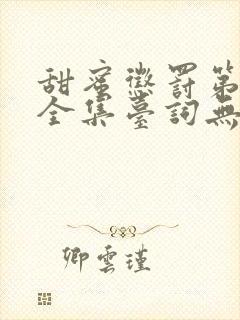 甜蜜懲罰第
全集臺詞無
卿雲瑾